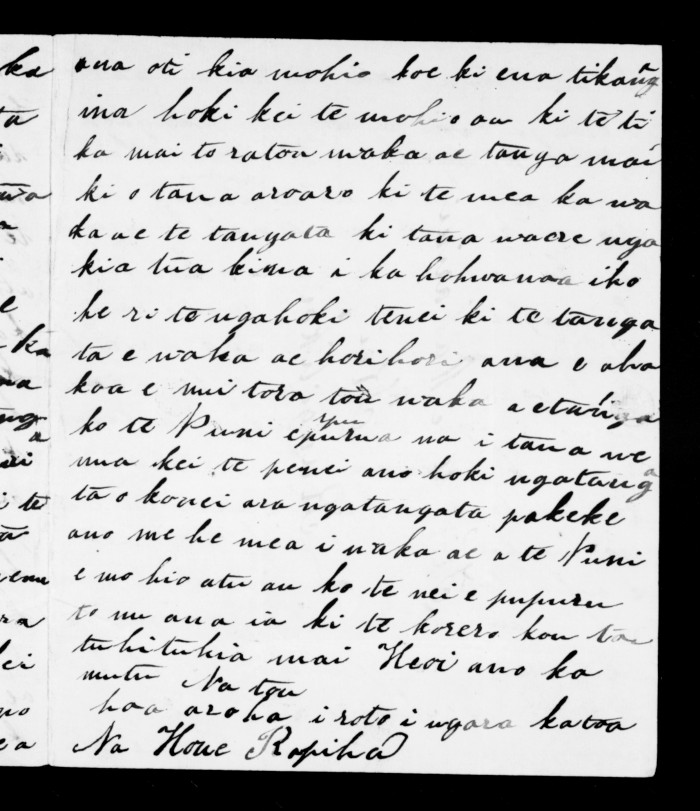 ka
ta
ana oti kia mohio koe ki ena tikang
ina hoki kei te mohio au ki te ti
ka mai to ratou waka ae tanga mai
ki o tana aroaro ki te mea ka wa
ka ae te tangata ki tana waere nga
kia tua kina i ka hohwanaa iho
he ri te ngahoki tenei ki te tanga
ta e waka ae horihori ana e aha
koa e nui tora tou waka aetanga
ko te Puni epuru na i tana we
nua kei te penei ano hoki ngatanga
ta o konei ara ngatangata pakeke
ano me he mea i waka ae a te Puni
e mohio atu au ko te nei e pupuru
to nu ana ia ki te korero kou
tuhituhia mai Heoi ano ka
mutu Na tou
hoa aroha i roto i ngara katoa
Na Hone Ropiha